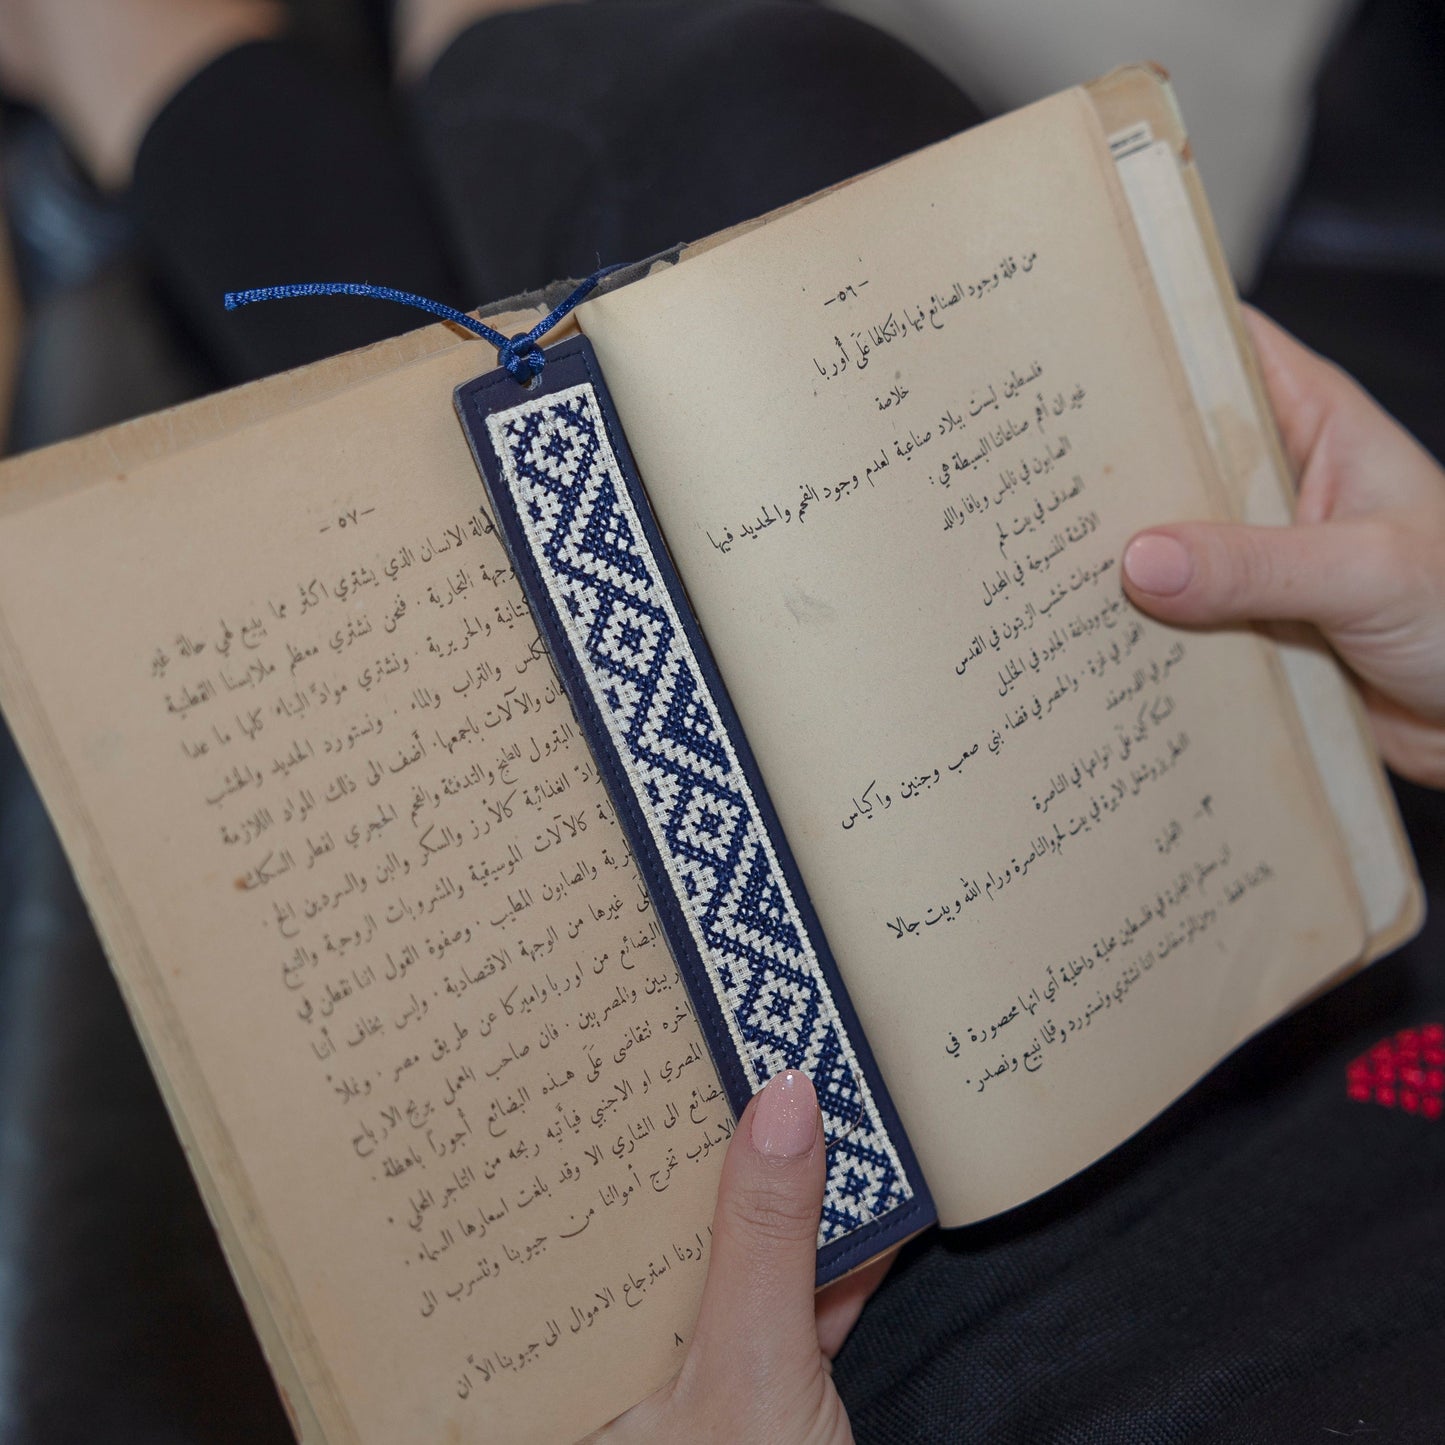 -٥٦-
من قلة وجود الصنائع فيها واتكالها عَلَى أُوربا
خلاصة
فلسطين ليست ببلاد صناعية لعدم وجود الفحم والحديد فيها
غير ان أهم صناعاتنا البسيطة هي :
الصابون في نابلس ويافا واللد
الصدف في بيت لحم
الاقمشة المنسوجة في المجدل
مصنوعات خشب الزيتون في القدس
زجاج ودباغة الجلود في الخليل
الفخار في غزة . والحصر في قضاء بني صعب وجنين واكياس
الشعر في
السكاكين عَلَى انواعها في الناصرة
التطريز وشغل الابرة في بيت لحم والناصرة ورام الله وبيت جالا
٣- التجارة
ان معظم التجارة في فلسطين محلية داخلية أي انها محصورة في
بلادنا فقط . ومن المؤسفات اننا نشتري ونستورد وقلما نبيع ونصدر .
-٥٧-
حالة الانسان الذي يشتري اكثر مما يبيع لهي حالة غير
وجهة التجارية . فنحن نشتري معظم ملابسنا القطنية
والحريرية . ونشتري موادّ البناء كلها ما عدا
والتراب والماء . ونستورد الحديد والخشب
والآلات باجمعها . أضف الى ذلك المواد اللازمة
البترول للطبخ والتدفئة والفحم الحجري لقطر السكك
الغذائية كالأرز والسكر والبن والسردين الخ .
كالآلات الموسيقية والمشروبات الروحية والتبغ
والصابون المطيب . وصفوة القول اننا نقطن في
غيرها من الوجهة الاقتصادية . وليس بخاف أننا
البضائع من اوربا واميركا عن طريق مصر . وفضلاً
والمصريين . فان صاحب المعمل يربح الارباح
تتقاضى عَلَى هذه البضائع أجوراً باهظة .
المصري او الاجنبي فيأتيه ربحه من التاجر المحلي .
الى الشاري الا وقد بلغت اسعارها السماء .
الاسلوب تخرج أموالنا من جيوبنا وتتسرب الى
اردنا استرجاع الاموال الى جيوبنا الاَّ ان
٨